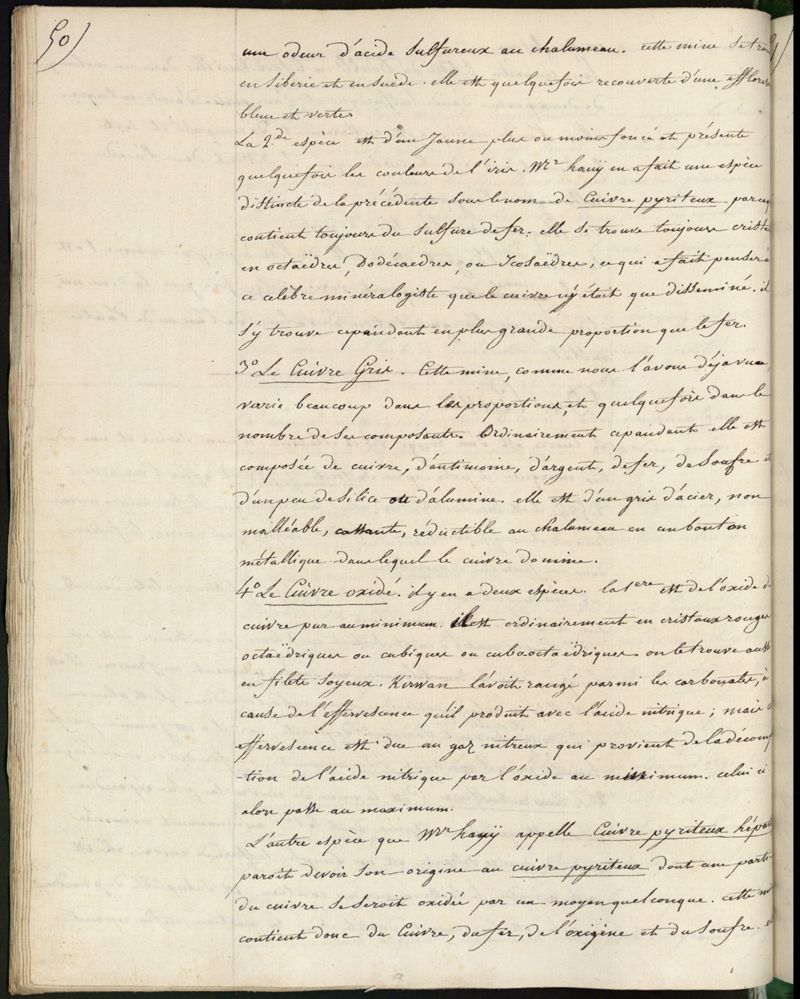 50)
une odeur d'acide sulfureux au chalumeau. cette mine se trou
en Siberie et en suède. elle est quelquefois recouverte d'une efflores
bleue et verte
La 2.de espèce est d'un Jaune plus ou moins foncé et présente
quelquefois les couleurs de l'iris. Mr haüy en a fait une espèce
distincte de la précédente sous le nom de Cuivre pyriteux parcequ
contient toujours du sulfure de fer. elle se trouve toujours crista
en octaëdres, Dodécaedres, ou Icosaëdres, ce qui a fait penser à
ce célèbre minéralogiste que le cuivre n'y était que disséminé. il
s'y trouve cependant en plus grande proportion que le fer.
3° Le Cuivre Gris. Cette mine, comme nous l'avons déja vue
varie beaucoup dans les proportions, et quelquefois dans le
nombre de ses composants. Ordinairement cepandant elle est
composée de cuivre, d'antimoine, d'argent, de fer, de soufre et
d'un peu de silice ou d'alumine. elle est d'un gris d'acier, non
malléable, cassante, réductible au chalumeau en un bouton
métallique dans lequel le cuivre domine.
4° Le Cuivre oxidé. il y en a deux espèces. la 1ere est de l'oxide d
cuivre pur au minimum. il est ordinairement en cristaux rouges
octaëdriques ou cubiques ou cubooctaëdriques. on le trouve aussi
en filets soyeux. Kirwan l'avoit rangé parmi les carbonates, à
cause de l'effervescence qu'il produit avec l'acide nitrique; mais c
effervescence est due au gaz nitreux qui provient de la décomp
-tion de l'acide nitrique par l'oxide au minimum. celui ci
alors passe au maximum.
L'autre espèce que Mr haüy appelle Cuivre pyriteux hépat
paroît devoir son origine au cuivre pyriteux dont une partie
du cuivre se seroit oxidée par un moyen quelconque. cette mi
contient donc du Cuivre, du fer, de l'oxigène et du soufre. e